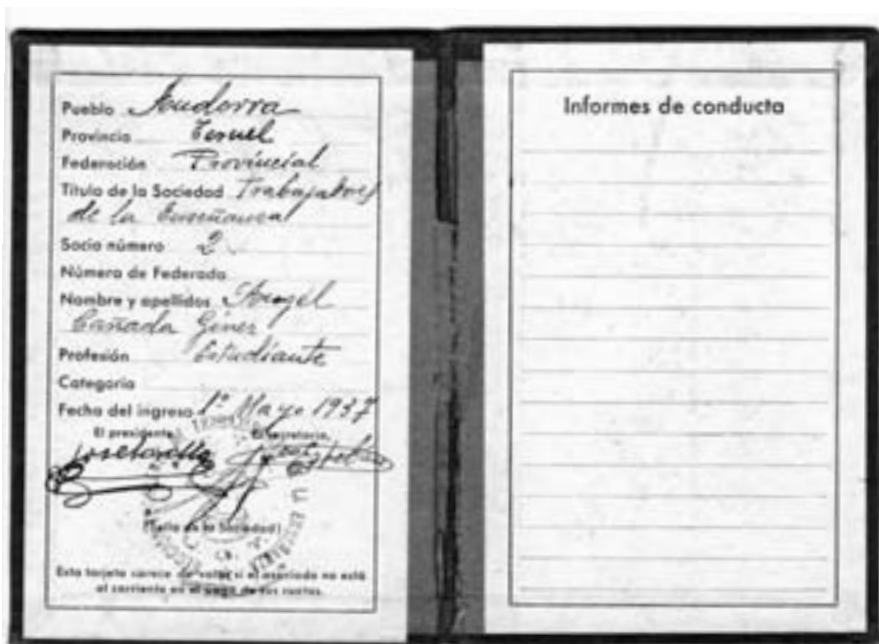 Pueblo Andorra
Provincia Teruel
Federación Provincial
Título de la Sociedad Trabajadores
de la Enseñanza
Socio número 2
Número de Federado
Nombre y apellidos Angel
Cañada Giner
Profesión Estudiante
Categoría
Fecha del ingreso 1º Mayo 1937
El presidente, El secretario,
(Sello de la Sociedad)
Esta tarjeta carece de valor si el asociado no está
al corriente en el pago de sus cuotas.
Informes de conducta